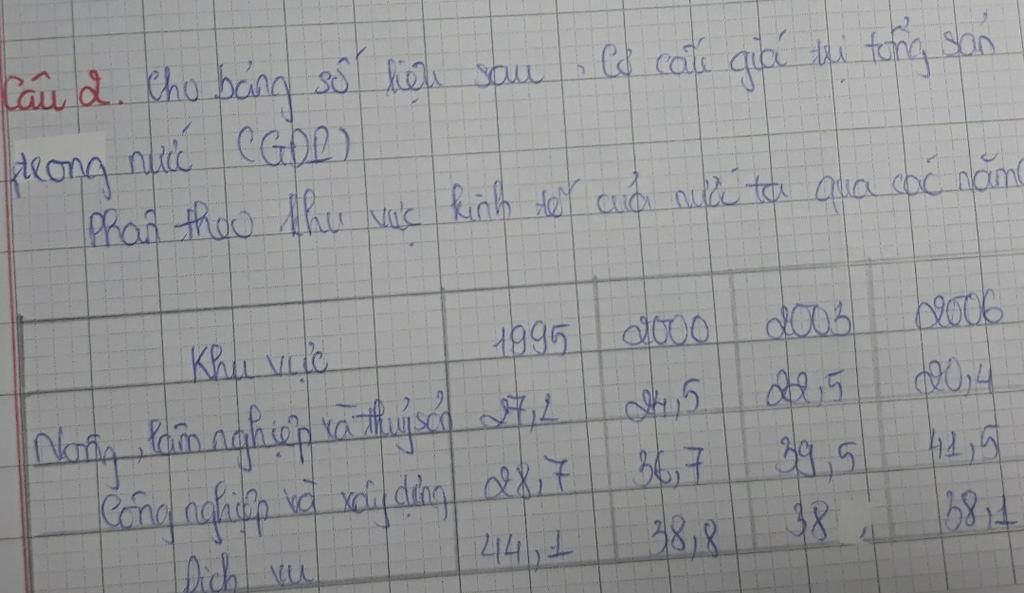 Câu 2. Cho bảng số liệu sau. Cơ cấu giá trị tổng sản
trong nước (GDP)
Phân theo khu vực kinh tế của nước ta qua các năm
Khu vực 1995 2000 2003 2006
Nông, lâm nghiệp và thuỷ sản 27,2 24,5 22,5 20,4
Công nghiệp và xây dựng 28,7 36,7 39,5 41,5
Dịch vụ 44,1 38,8 38 38,1